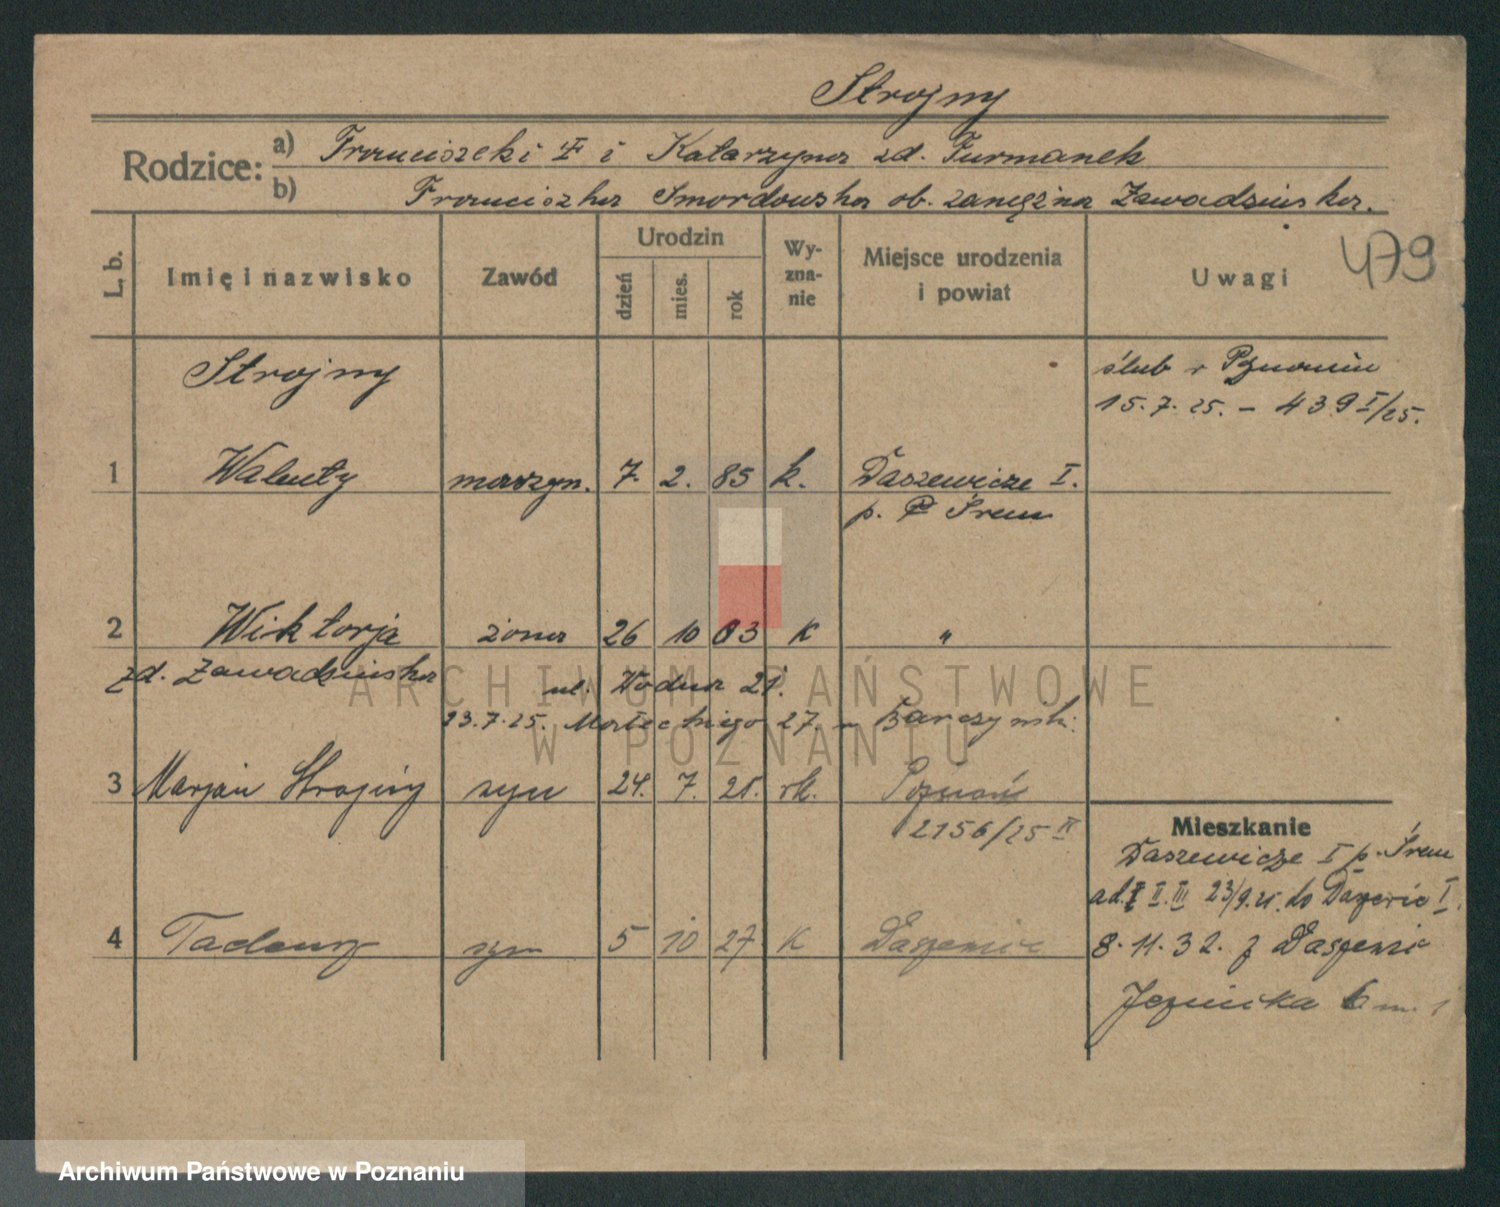 Strojny
Rodzice: a) Franciszek i Katarzyna zd. Furmanek
b) Franciszka Smordowska ob. zamężna Zawadzinska.
479
L. b. Imię i nazwisko Zawód Urodzin dzień mies. rok Wyznanie Miejsce urodzenia i powiat Uwagi
Strojny ślub w Poznaniu
15.7.25. – 439 I/25.
1 Walenty maszyn. 7. 2. 85 k. Daszewice I.
p. Śrem
2 Wiktorja żona 26 10 03 k "
zd. Zawadzinska
ul. Wodna 21.
23.7.25. Małeckiego 27. Barczynski
3 Marjan Strojny syn 24. 7. 25. rk. Poznań
2156/25 II
Mieszkanie
Daszewice I p. Śrem
ad. I II. III 23/9. 25. do Daszewic I.
4 Tadeusz syn 5 10 27 K Daszewic 8. 11. 32. z Daszewic
6 m. 1
ARCHIWUM PAŃSTWOWE
W POZNANIU
Archiwum Państwowe w Poznaniu